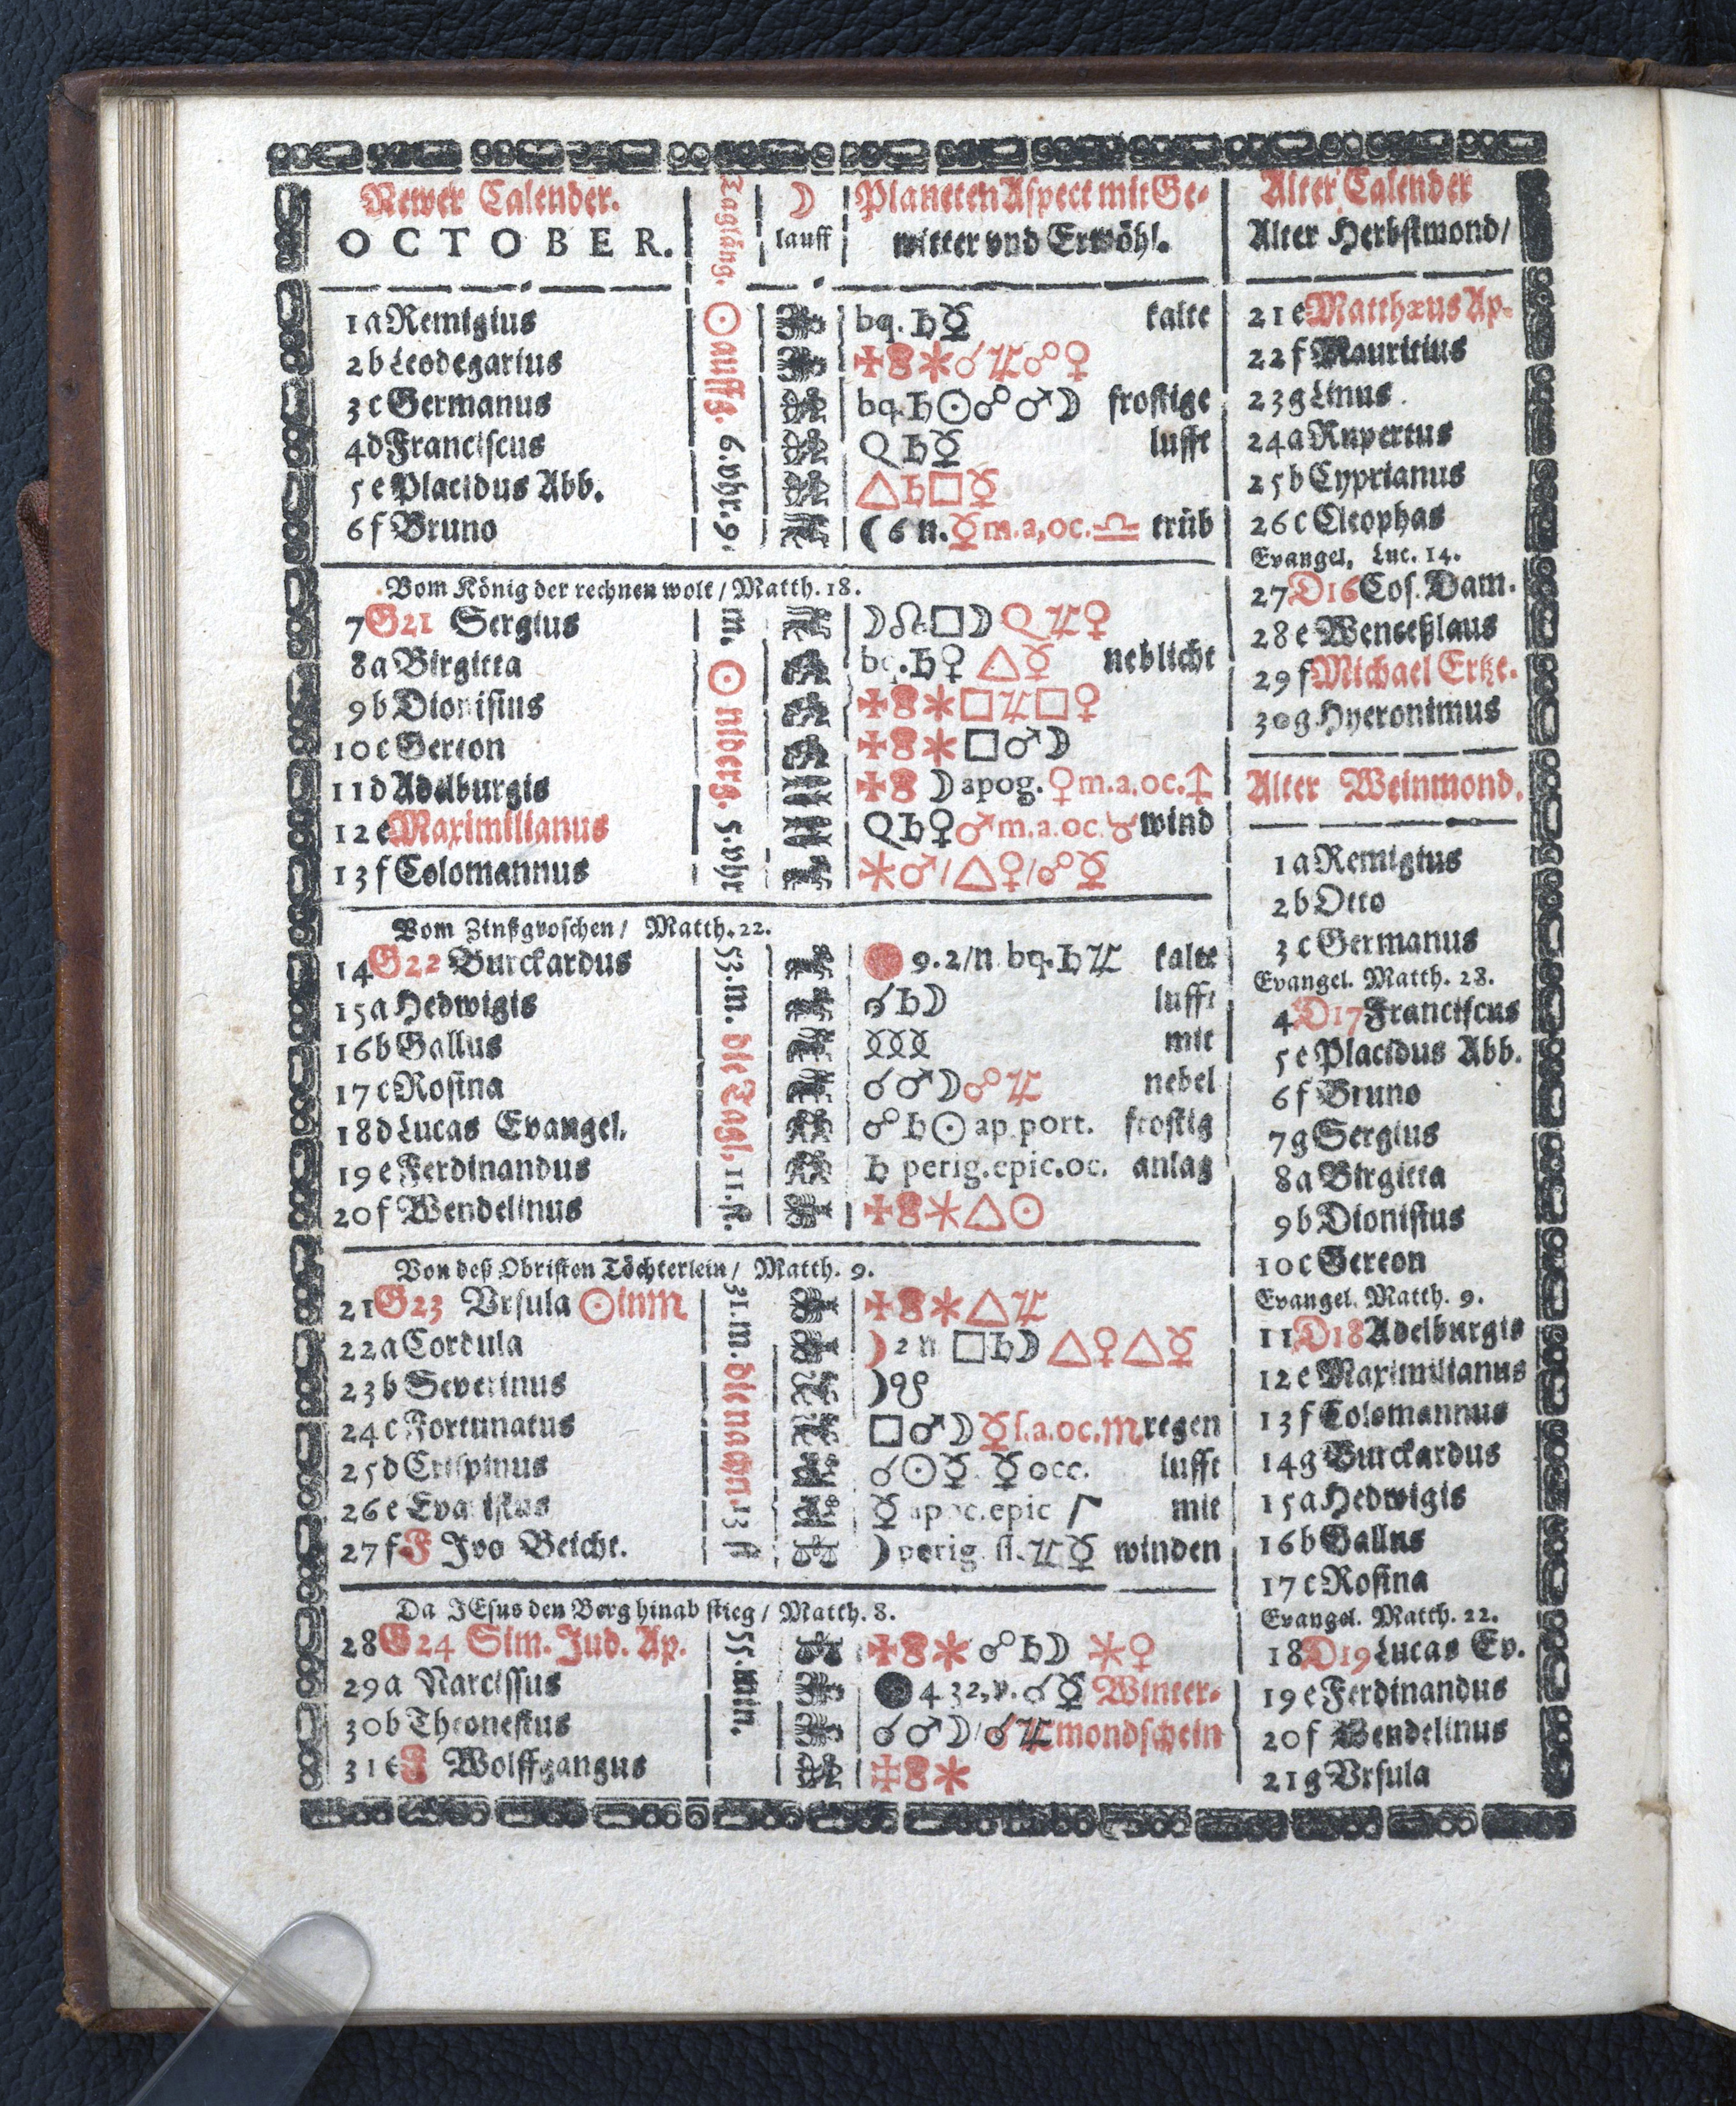 Newer Calender.
OCTOBER.
1 a Remigius
2 b Leodegarius
3 c Germanus
4 d Franciscus
5 e Placidus Abb.
6 f Bruno
Vom König der rechnen wolt / Matth. 18.
7 G 21 Sergius
8 a Birgitta
9 b Dionisius
10 c Gereon
11 d Adelburgis
12 e Maximilianus
13 f Colomannus
Vom Zinßgroschen / Matth. 22.
14 G 22 Burckardus
15 a Hedwigis
16 b Gallus
17 c Rosina
18 d Lucas Evangel.
19 e Ferdinandus
20 f Wendelinus
Von deß Obristen Töchterlein / Matth. 9.
21 G 23 Vrsula ☉ in ♏
22 a Cordula
23 b Severinus
24 c Fortunatus
25 d Crispinus
26 e Evaristus
27 f F Ivo Beicht.
Da JEsus den Berg hinab stieg / Matth. 8.
28 G 24 Sim. Jud. Ap.
29 a Narcissus
30 b Theonestus
31 c F Wolffgangus
Tagläng. ☉ auffg. 6. vhr. 9.
m. ☉ niderg. 5. vhr
53. m. die Tagl. 11. st.
31. m. die nacht. 13 st
55. min.
☽
lauff
Planeten Aspect mit Ge-
witter vnd Erwöhl.
bq. ♄ ☿ kalte
✠ * ☌ ♃ ☍ ♀
bq. ♄ ☉ ☍ ♂ ☽ frostige
Q ♄ ☿ lufft
△ ♄ □ ☿
( 6 n. ☿ m. a, oc. ♎ trüb
☽ ☊ □ ☽ Q ♃ ♀
♄ ♀ △ ☿ neblicht
✠ * □ ♃ □ ♀
✠ * □ ♂ ☽
✠ ☽ apog. ♀ m. a. oc. ♐
Q ♄ ♀ ♂ m. a. oc. ♉ wind
* ♂ / △ ♀ / ☍ ☿
9. 2 / n bq. ♄ ♃ kalte
☌ ♄ ☽ lufft
mit
☌ ♂ ☽ ☍ ♃ nebel
☍ ♄ ☉ ap. port. frostig
♄ perig. epic. oc. anlas
✠ * △ ☉
✠ * △ ♃
) 2 n □ ♄ ☽ △ ♀ △ ☿
) ☋
□ ♂ ☽ ☿ s. a. oc. ♏ regen
☌ ☉ ☿ ☿ occ. lufft
☿ epic mit
) perig. ♃ ☿ winden
✠ * ☍ ♄ ☽ * ♀
● 4 32, v. ☌ ☿ Winter-
☌ ♂ ☽ / ☌ ♃ mondschein
✠ *
Alter Calender
Alter Herbstmond /
21 e Matthæus Ap.
22 f Mauritius
23 g Linus.
24 a Rupertus
25 b Cyprianus
26 c Cleophas
Evangel. Luc. 14.
27 D 16 Cos. Dam.
28 e Wenceßlaus
29 f Michael Ertze.
30 g Hyeronimus
Alter Weinmond.
1 a Remigius
2 b Otto
3 c Germanus
Evangel. Matth. 28.
4 D 17 Franciscus
5 e Placidus Abb.
6 f Bruno
7 g Sergius
8 a Birgitta
9 b Dionisius
10 c Gereon
Evangel. Matth. 9.
11 D 18 Adelburgis
12 e Maximilianus
13 f Colomannus
14 g Burckardus
15 a Hedwigis
16 b Gallus
17 c Rosina
Evangel. Matth. 22.
18 D 19 Lucas Ev.
19 e Ferdinandus
20 f Wendelinus
21 g Vrsula